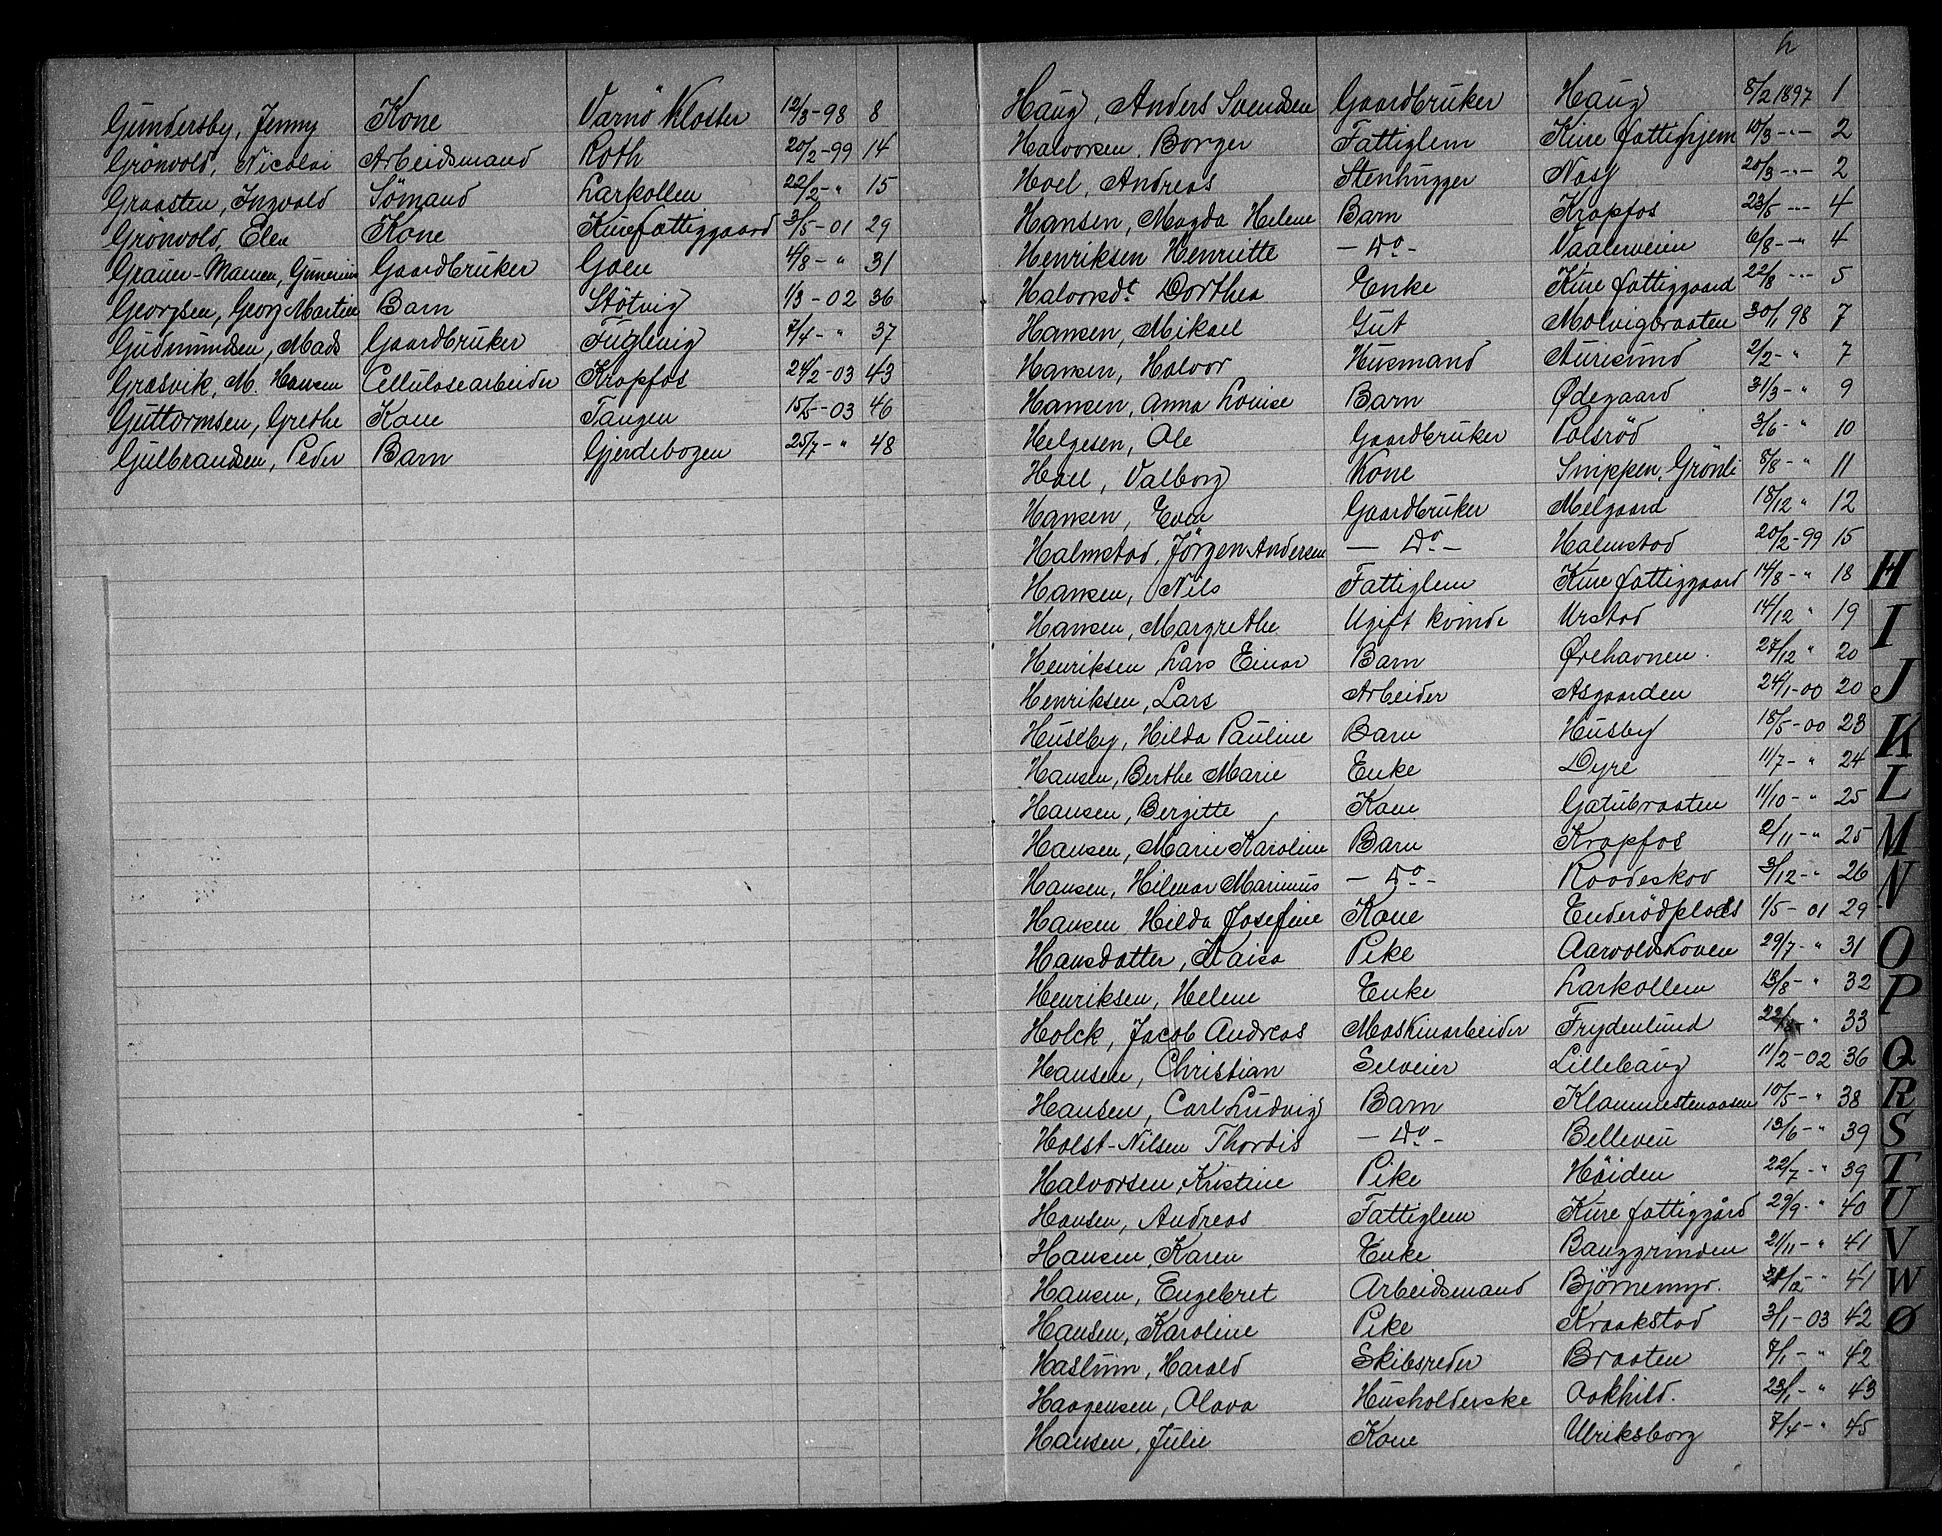 Gundersby, Jenny Kone Varnö Kloster 12/3-98 8
Grönvold, Nicolai Arbeidsmand Roth 20/2-99 14
Graasten, Ingvald Sömand Larkollen 22/2-" 15
Grönvold, Elen Kone Kure fattiggaard 3/5-01 29
Grauer-Mamen, Gunerius Gaardbruker Goen 4/8-" 31
Georgsen, Georg Martin Barn Stötvig 1/3-02 36
Gudmundsen, Mads Gaardbruker Fuglevig 7/4-" 37
Græsvik, M. Hansen Cellulosearbeider Kropfos 24/2-03 43
Guttormsen, Grethe Kone Tangen 15/5-03 46
Gulbrandsen, Peder Barn Gjerdebogen 25/7-" 48
h
Haug, Anders Svendsen Gaardbruker Haug 8/2 1897 1
Halvorsen, Borger Fattiglem Kure fattighjem 10/3-"- 2
Hoel, Andreas Stenhugger Nøsf 20/3-"- 2
Hansen, Magda Helene Barn Kropfos 23/5-"- 4
Henriksen Henriette - Do - Vaalerveien 6/8-"- 4
Halvorsdt. Dorthea Enke Kure fattiggaard 22/8-"- 5
Hansen, Mikael Gut Molvigbraaten 30/1 98 7
Hansen, Halvor Husmand Aurisund 2/2-" 7
Hansen, Anna Louise Barn Ødegaard 31/3-" 9
Helgesen, Ole Gaardbruker Polsröd 3/6-" 10
Hall, Valborg Kone Snippen, Grönli 8/8-" 11
Hansen, Even Gaardbruker Melgaard 18/12 " 12
Halmstad, Jörgen Andersen - Do - Halmstad 20/2-99 15
Hansen, Nils Fattiglem Kure fattiggaard 14/8-" 18
Hansen, Margrethe Ugift kvinde Urstad 14/12 " 19
Henriksen, Lars Einar Barn Ørehavnen. 27/12 " 20
Henriksen, Lars Arbeider Asgaarden 24/1-00 20
Huseby, Hilda Pauline Barn Husby 18/5-00 23
Hansen, Berthe Marie Enke Dyre 11/7-" 24
Hansen, Bergitte Kone Gatubraaten 11/10-" 25
Hansen, Marie Karoline Barn Kropfos 2/11-" 25
Hansen, Hilmar Marinius - Do - Raadeskov 3/12-" 26
Hansen Hilda Josefine Kone Enderödplads 1/5-01 29
Hansdatter, Kaisa Pike Aarvoldskoven 29/7-" 31
Henriksen, Helene Enke Larkollen 13/8-" 32
Holck, Jacob Andreas Maskinarbeider Frydenlund 22/ " 33
Hansen, Christian Selveier Lillehaug 11/2-02 36
Hansen, Carl Ludvig Barn Klommestenaasen 10/5-" 38
Holst-Nilsen Thordis - Do - Belleveu 13/6-" 39
Halvorsen, Kristine Pike Höiden 22/7-" 39
Hansen, Andreas Fattiglem Kure fattiggård 29/9-" 40
Hansen, Karen Enke Bauggrinden 21/11-" 41
Hansen, Engebret Arbeidsmand Björnemyr. /12-" 41
Hansen, Karoline Pike Kraakstad 3/1-03 42
Haslum, Harald Skibsreder Braaten 7/1-" 42
Haagensen, Olava Husholderske Aakhild. 23/1-" 43
Hansen, Julie Kone Ulriksborg 7/4-" 45
H
I
J
K
L
M
N
O
P
Q
R
S
T
U
V
W
Ø